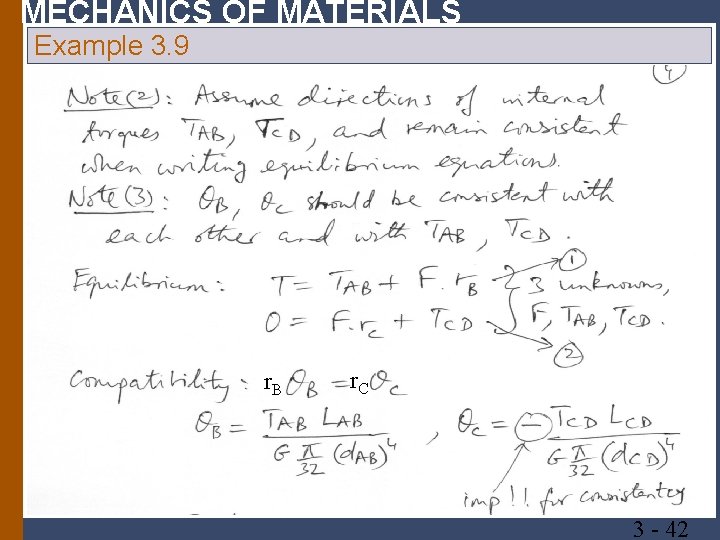 MECHANICS OF MATERIALS
Example 3.9
4
Note(2): Assume directions of internal
torques T_AB, T_CD, and remain consistent
when writing equilibrium equations.
Note(3): θ_B, θ_C should be consistent with
each other and with T_AB, T_CD.
Equilibrium: T = T_AB + F.r_B } 1 3 unknowns,
0 = F.r_C + T_CD 2 F, T_AB, T_CD.
Compatibility: r_B θ_B = r_C θ_C
θ_B = T_AB L_AB / G π/32 (d_AB)^4 , θ_C = - T_CD L_CD / G π/32 (d_CD)^4
imp!! for consistentcy
3 - 42